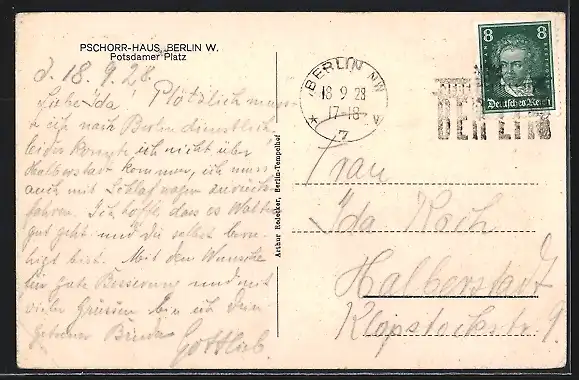 PSCHORR-HAUS, BERLIN W.
Potsdamer Platz
d. 18. 9. 28.
Liebe Ida! Plötzlich musste
ich nach Berlin dienstlich
leider konnte ich nicht über
Halberstadt kommen, ich muss
auch mit Schlafwagen zurück
fahren. Ich hoffe, dass es Walter
gut geht und Du selbst beru-
higt bist. Mit dem Wunsche
für gute Besserung und mit
vielen Grüssen bin ich Dein
getreuer Bruder
Gottlieb
Arthur Redecker, Berlin-Tempelhof
BERLIN NW
18 9 28
17-18
7
8 8
Deutsches Reich
BERLIN
Frau
Ida Koch
Halberstadt
Klopstockstr. 9.